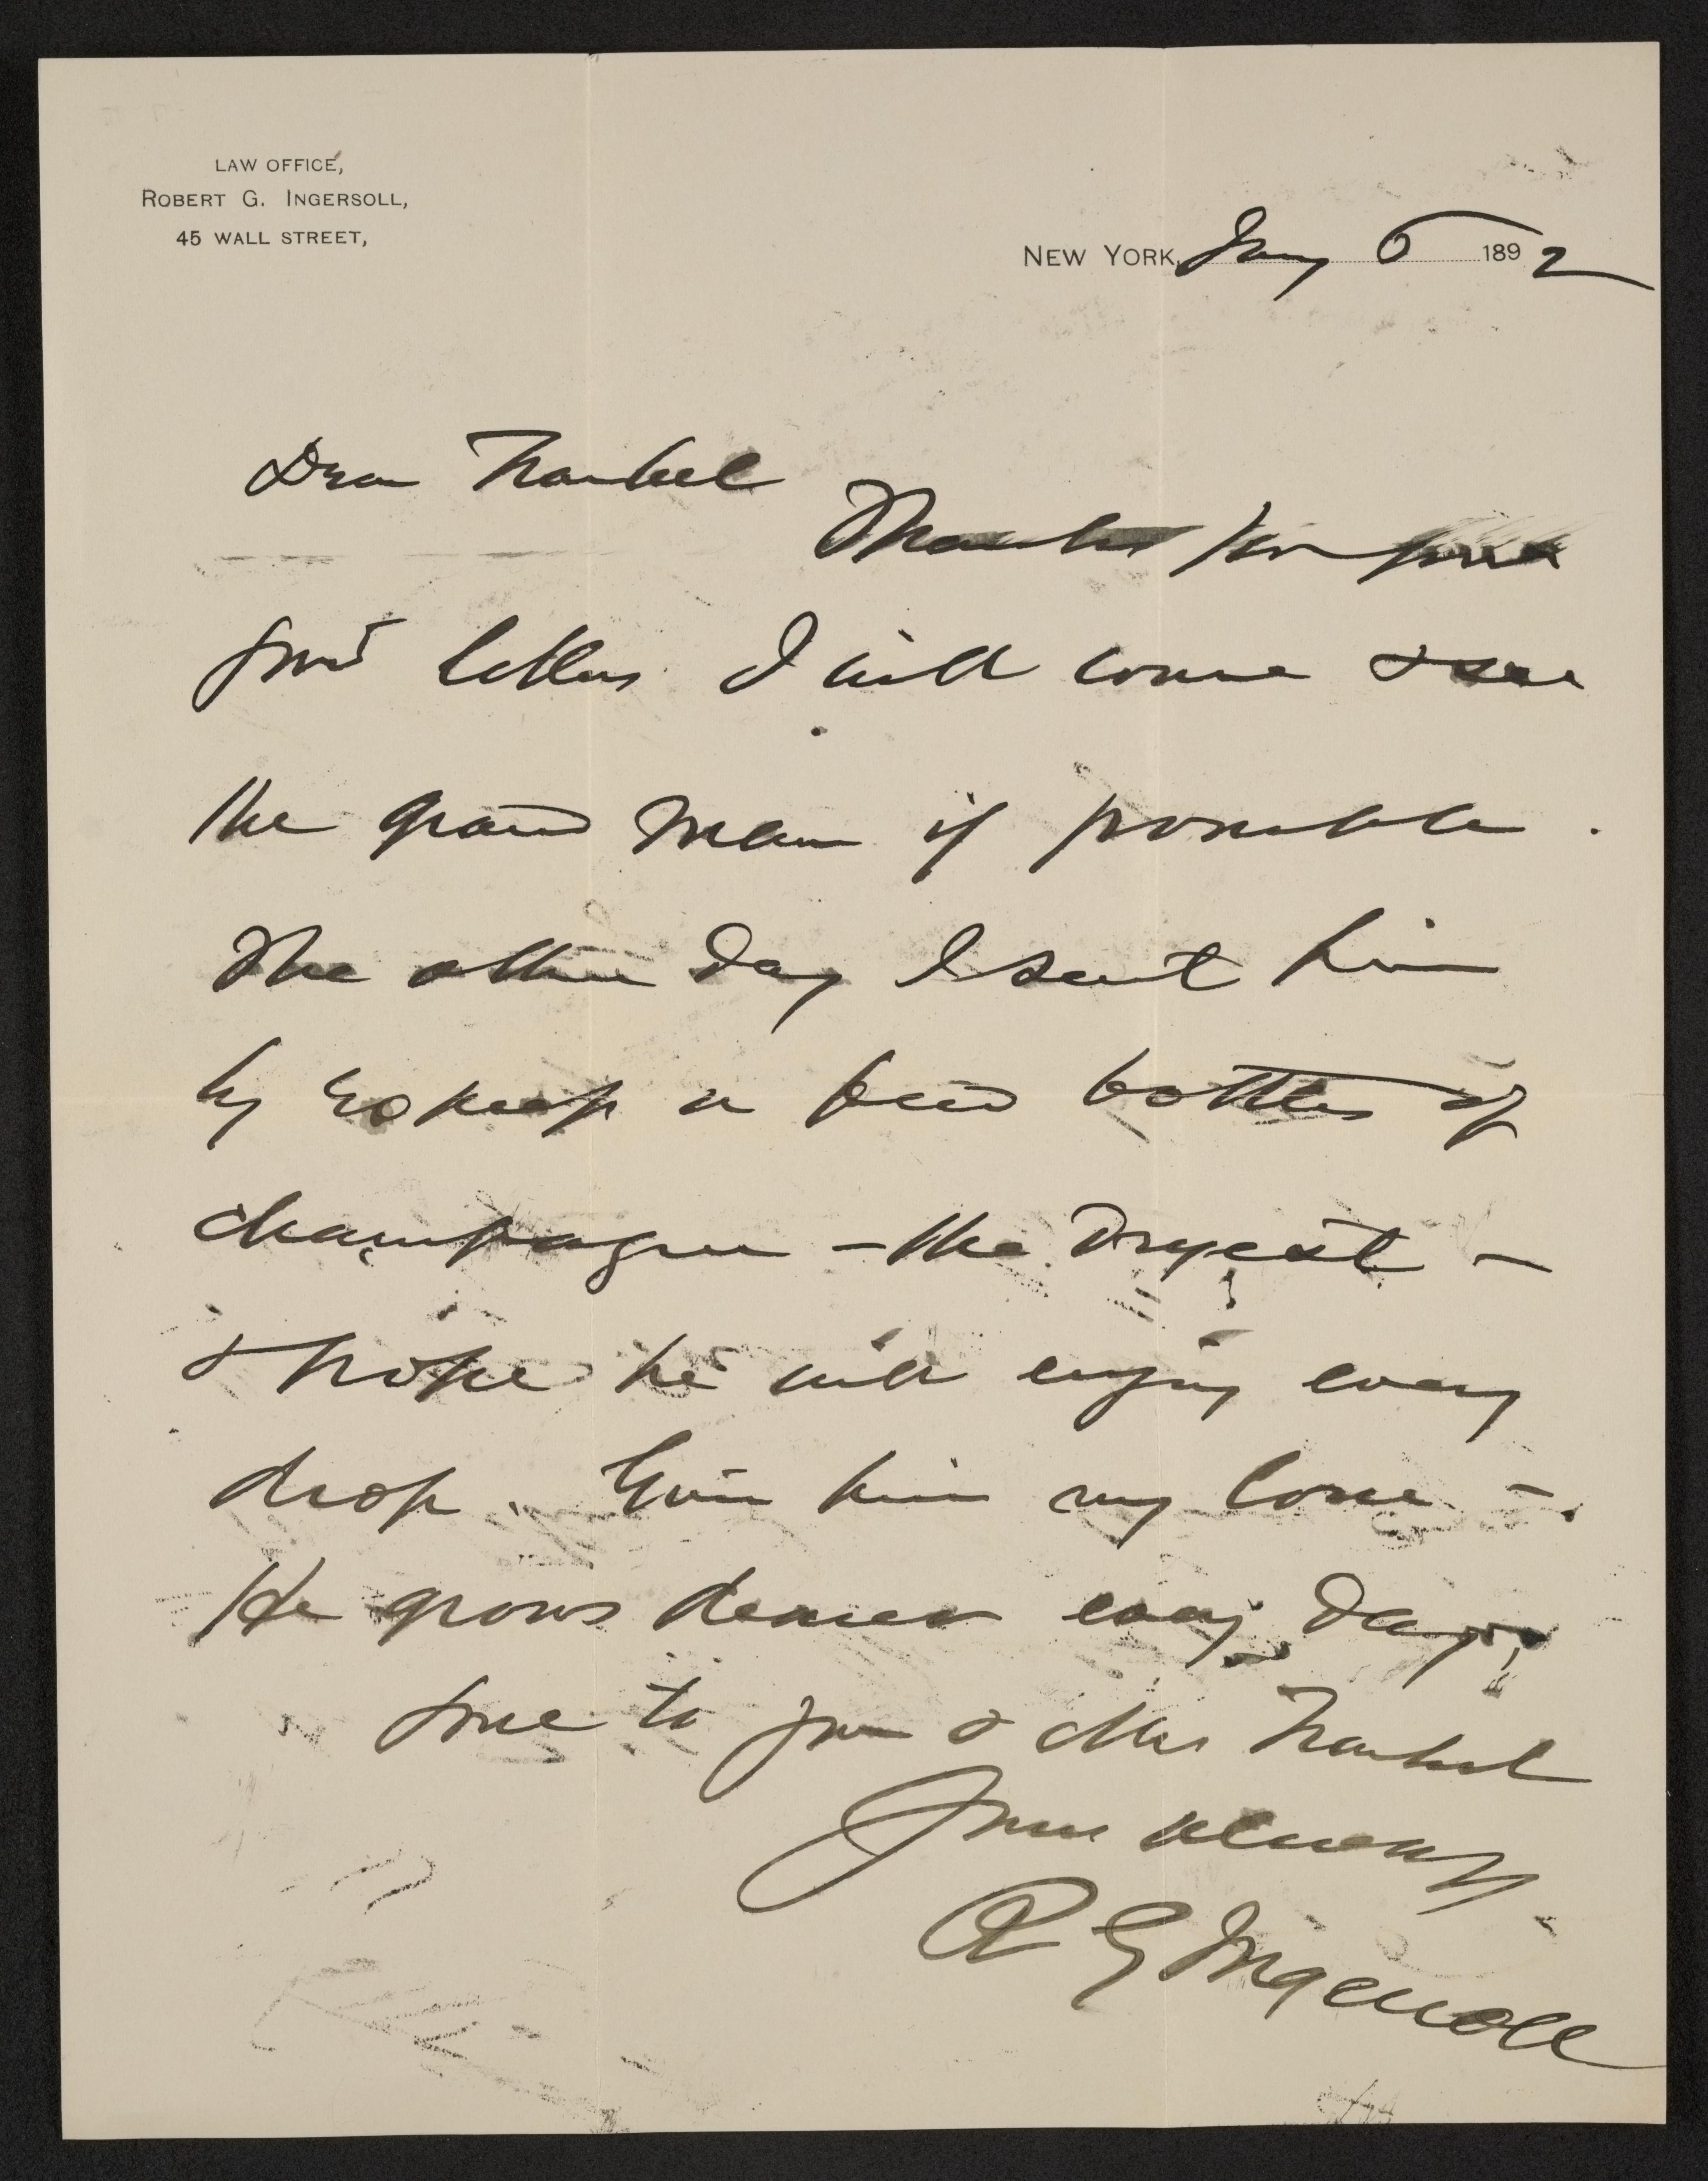 LAW OFFICE,
ROBERT G. INGERSOLL,
45 WALL STREET,
NEW YORK, Jany 6 1892
Dear Traubel
Thanks for your
good letters I will come & see
the grand man if possible.
The other day I sent him
by express a few bottles of
champagne – the Dryest –
& hope he will enjoy every
drop. Give him my love –
He grows dearer every day.
Love to you & Mrs Traubel
Yours always
R G Ingersoll